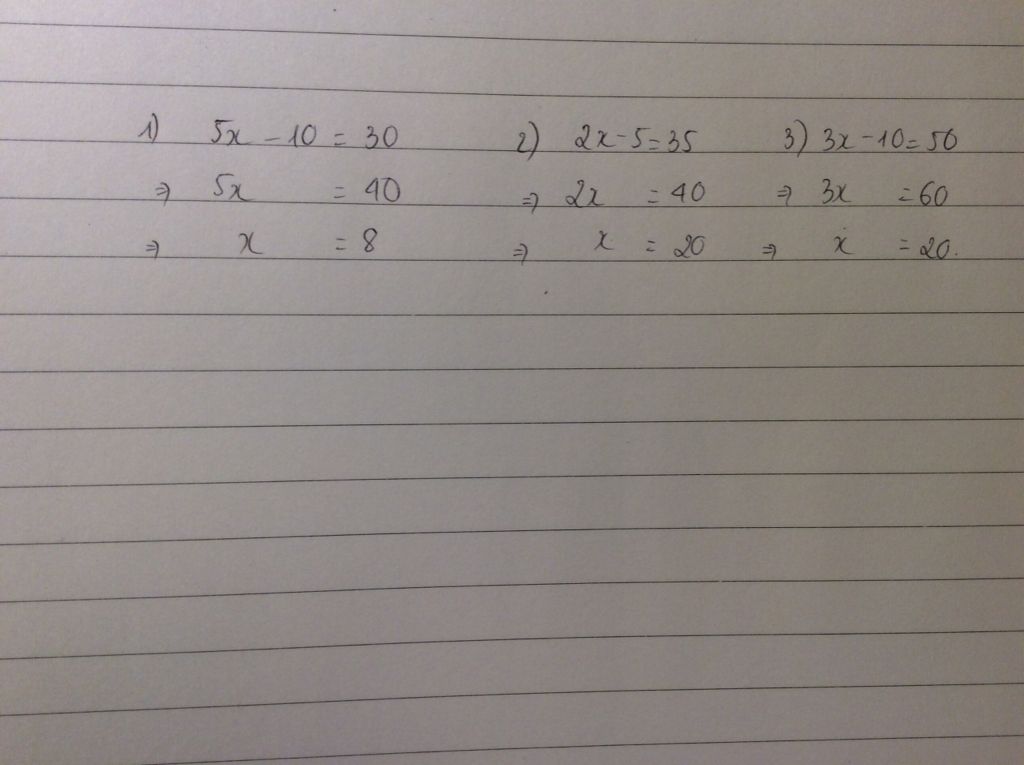 1) 5x - 10 = 30
⇒ 5x = 40
⇒ x = 8
2) 2x - 5 = 35
⇒ 2x = 40
⇒ x = 20
3) 3x - 10 = 50
⇒ 3x = 60
⇒ x = 20.